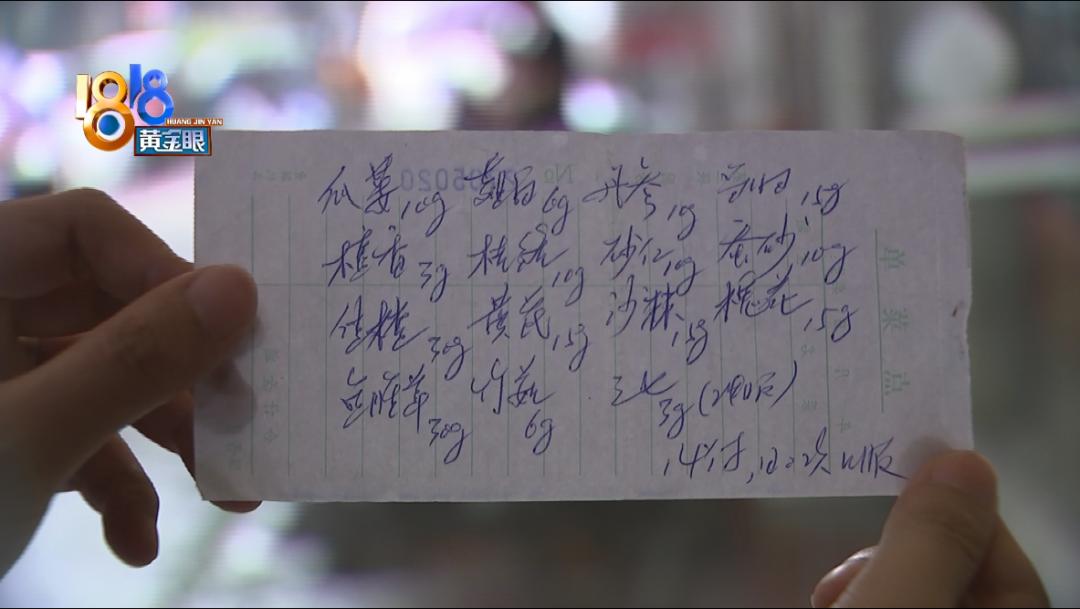 1818
HUANG JIN YAN
黄金眼
No 005020
瓜蒌10g 薤白6g 丹参10g 15g
檀香3g 桔络10g 砂仁10g 蚕砂10g
生楂30g 黄芪15g 沙棘15g 槐花15g
30g 竹茹6g 三七3g(
14付,日二次 服
点菜单